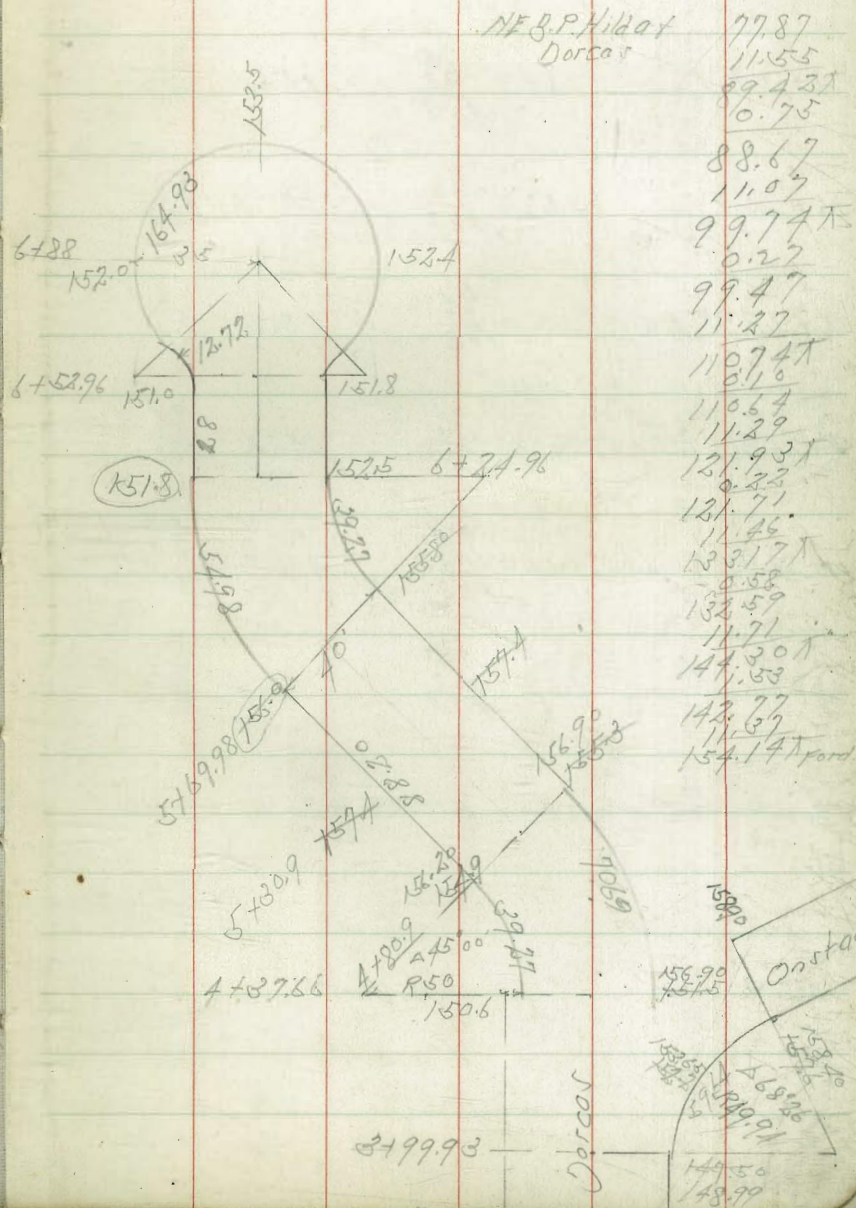 NE B.P. Hilda &
Dorcas
77.87
11.55
89.42 ⊼
0.75
88.67
11.07
99.74 ⊼
0.27
99.47
11.27
110.74 ⊼
0.10
110.64
11.29
121.93 ⊼
0.22
121.71
11.46
133.17 ⊼
0.58
132.59
11.71
144.30 ⊼
1.53
142.77
11.37
154.14 ⊼ Ford
153.5
164.93
6+88
152.0
35
152.4
12.72
6+52.96
151.0
151.8
28
151.8
152.5
6+24.96
39.27
54.98
155.80
40'
157.4
156.0
5+69.98
88.
156.90
155.3
157.4
5+30.9
156.20
70.69
39.27
4+80.9
Δ 45°00'
R 50
4+37.66
150.6
156.90
151.5
Onsta
158.40
Δ 68°26
R 19.91
Dorcas
3+99.93
149.50
148.99